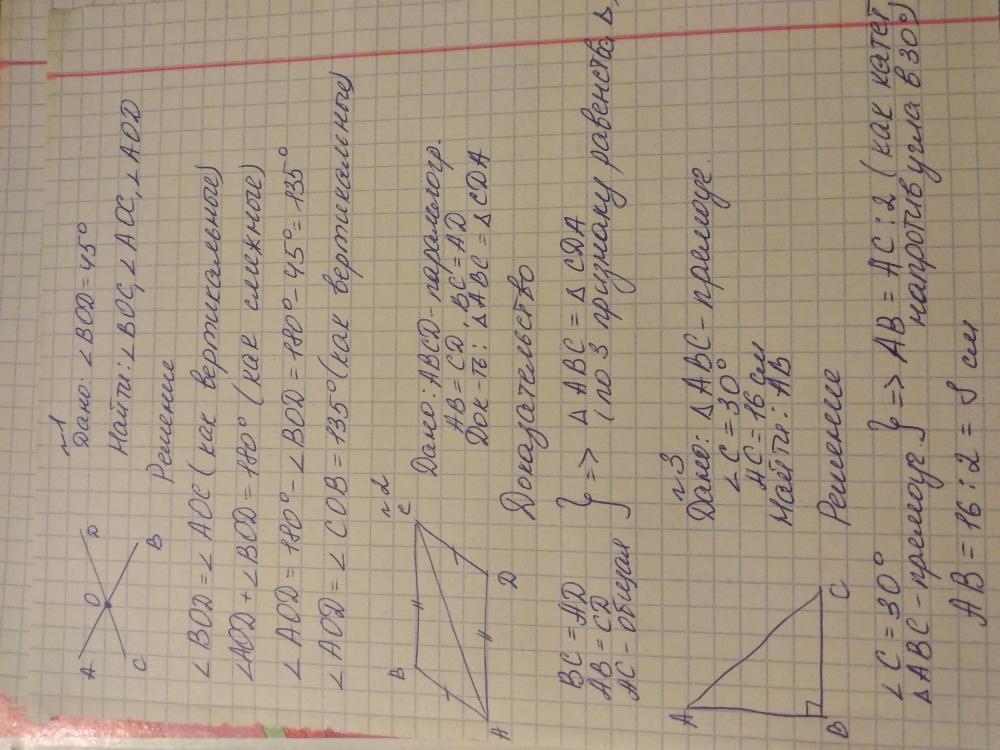 №1
A
D
O
C
B
Дано: ∠BOD = 45°
Найти: ∠BOC, ∠AOC, ∠AOD
Решение
∠BOD = ∠AOC (как вертикальные)
∠AOD + ∠BOD = 180° (как смежные)
∠AOD = 180° - ∠BOD = 180° - 45° = 135°
∠AOD = ∠COB = 135° (как вертикальные)
№2
B
C
A
D
Дано: ABCD - параллогр.
AB = CD, BC = AD
Док-ть: △ABC = △CDA
Доказательство
BC = AD
AB = CD
AC - общая
} => △ABC = △CDA
(по 3 признаку равенства △,
№3
A
B
C
Дано: △ABC - прямоуг.
∠C = 30°
AC = 16 см
Найти: AB
Решение
∠C = 30°
△ABC - прямоуг } => AB = AC : 2 (как катет
напротив угла в 30°)
AB = 16 : 2 = 8 см